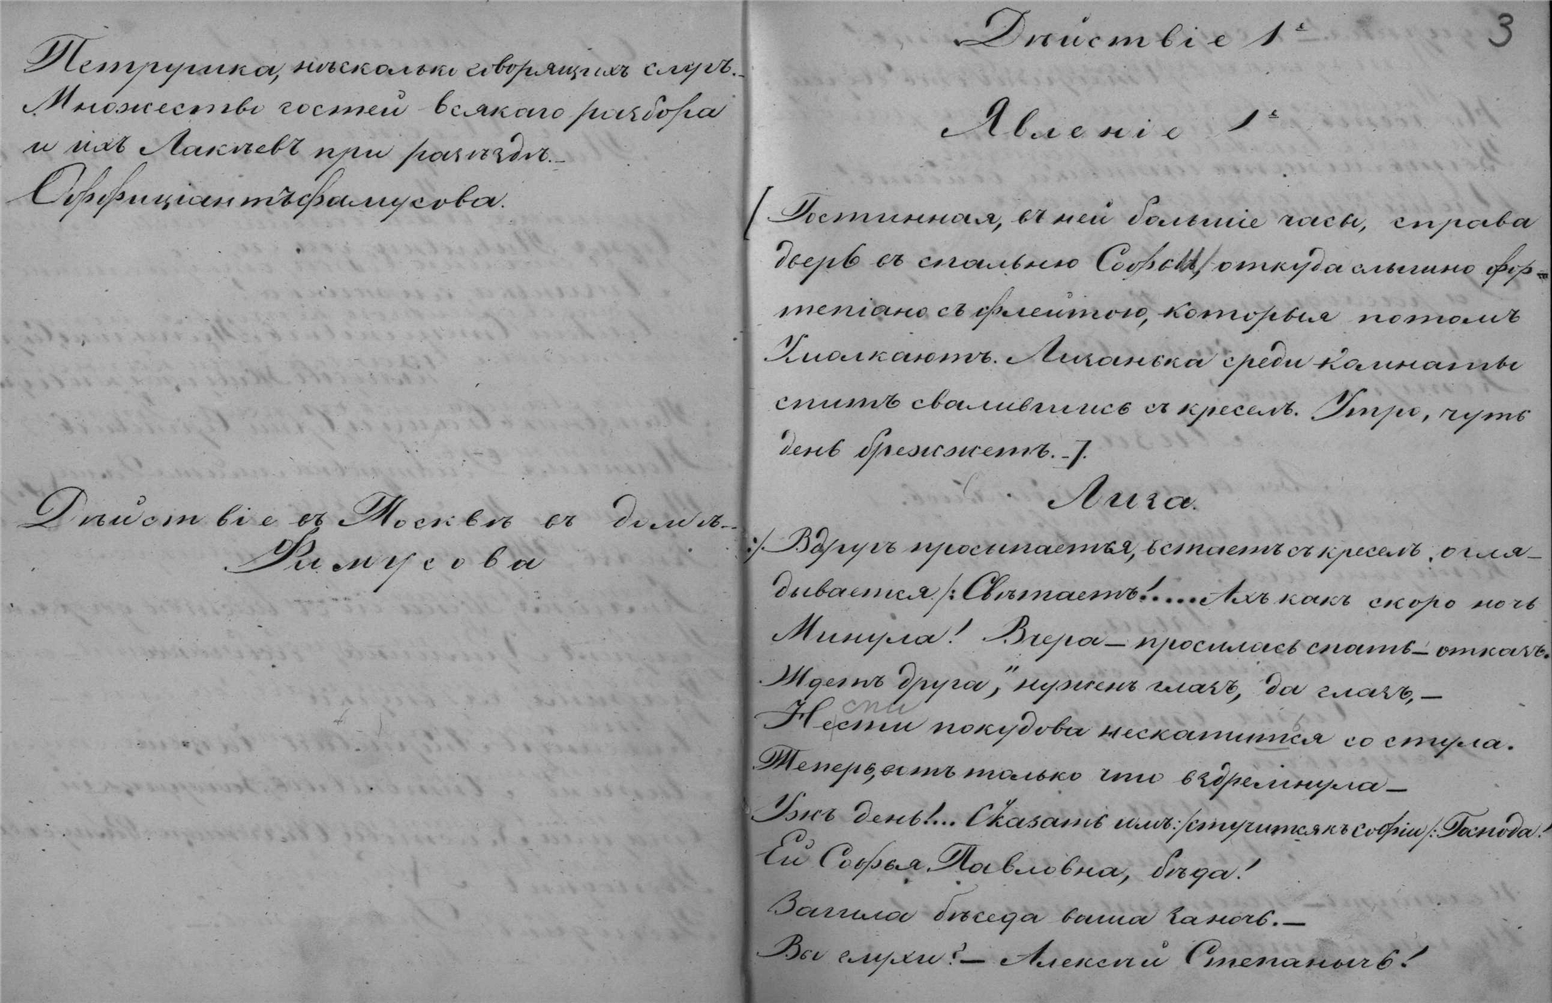 Петрушка, нѣсколько говорящихъ слугъ.
Множество гостей всякаго разбора
и ихъ Лакѣевъ при разъѣздѣ.
Оффиціантъ Фамусова.
Дѣйствіе въ Москвѣ въ домѣ
Фамусова
3
Дѣйствіе 1е
Явленіе 1е
[Гостинная, въ ней большіе часы, справа
дверь въ спальню Софьи, откуда слышно фор=
тепіано съ флейтою, которыя потомъ
Умолкаютъ. Лизанька среди комнаты
спитъ свалившись съ креселъ. Утро, чуть
день брежжетъ. -].
Лиза.
:/ Вдругъ просыпается, встаетъ съ креселъ, огля-
дывается /: Свѣтаетъ!..... Ахъ какъ скоро ночь
Минула! Вчера — просилась спать — отказъ.
Ждемъ друга, " нуженъ глазъ, да глазъ, —
спи
Нести покудова нескатится со стула.
Теперь, вотъ только что вздремнула —
Ужъ день!... Сказать имъ :/ стучится къ Софіи /: Господа!
Ей Софья Павловна, бѣда!
Зашла бѣседа ваша заночь. —
Вы глухи? — Алексѣй Степанычъ!